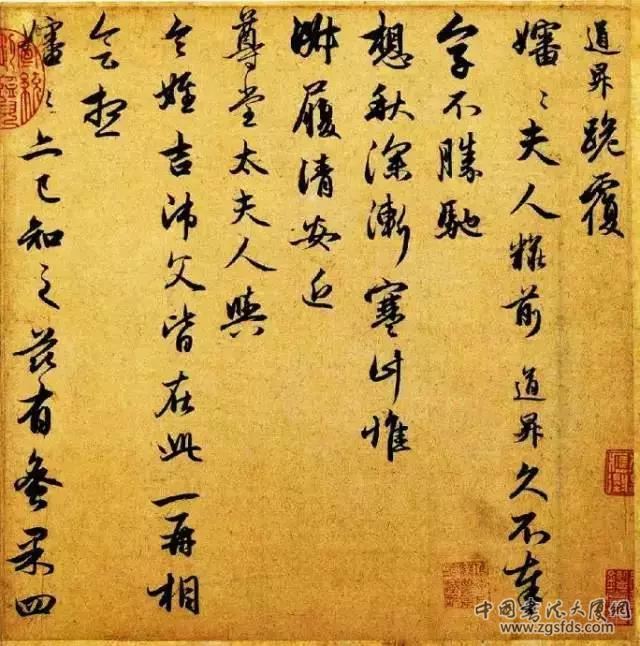 道昇跪覆
嬸〻夫人糚前道昇久不奉
字不勝馳
想秋深漸寒計惟
淑履清安近
尊堂太夫人與
令姪吉師父皆在此一再相
會想
嬸〻亦已知之茲有蜜果四
中國書法大厦網
www.zgsfds.com